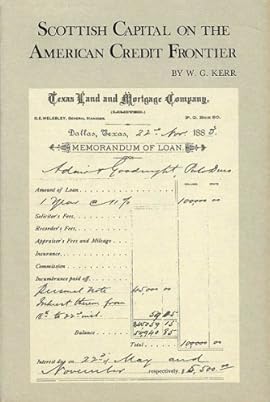 SCOTTISH CAPITAL ON THE
AMERICAN CREDIT FRONTIER
BY W. G. KERR
Texas Land and Mortgage Company,
(LIMITED.)
GENERAL MANAGER.
P. O. BOX 50.
Dallas, Texas, 22nd Nov. 188
MEMORANDUM OF LOAN.
Adair & Goodnight, Palo Duro
Amount of Loan
1 Year @ 11%
100000 00
Solicitor's Fees
Recorder's Fees
Appraiser's Fees and Mileage
Insurance
Commission
Incumbrance paid off
Personal Note
45000 00
Interest thereon from
to 22nd
59 85
45059 15
Balance
54940 85
Total
100000 00
Interest by on 22nd of May and
November respectively, $5,500 00